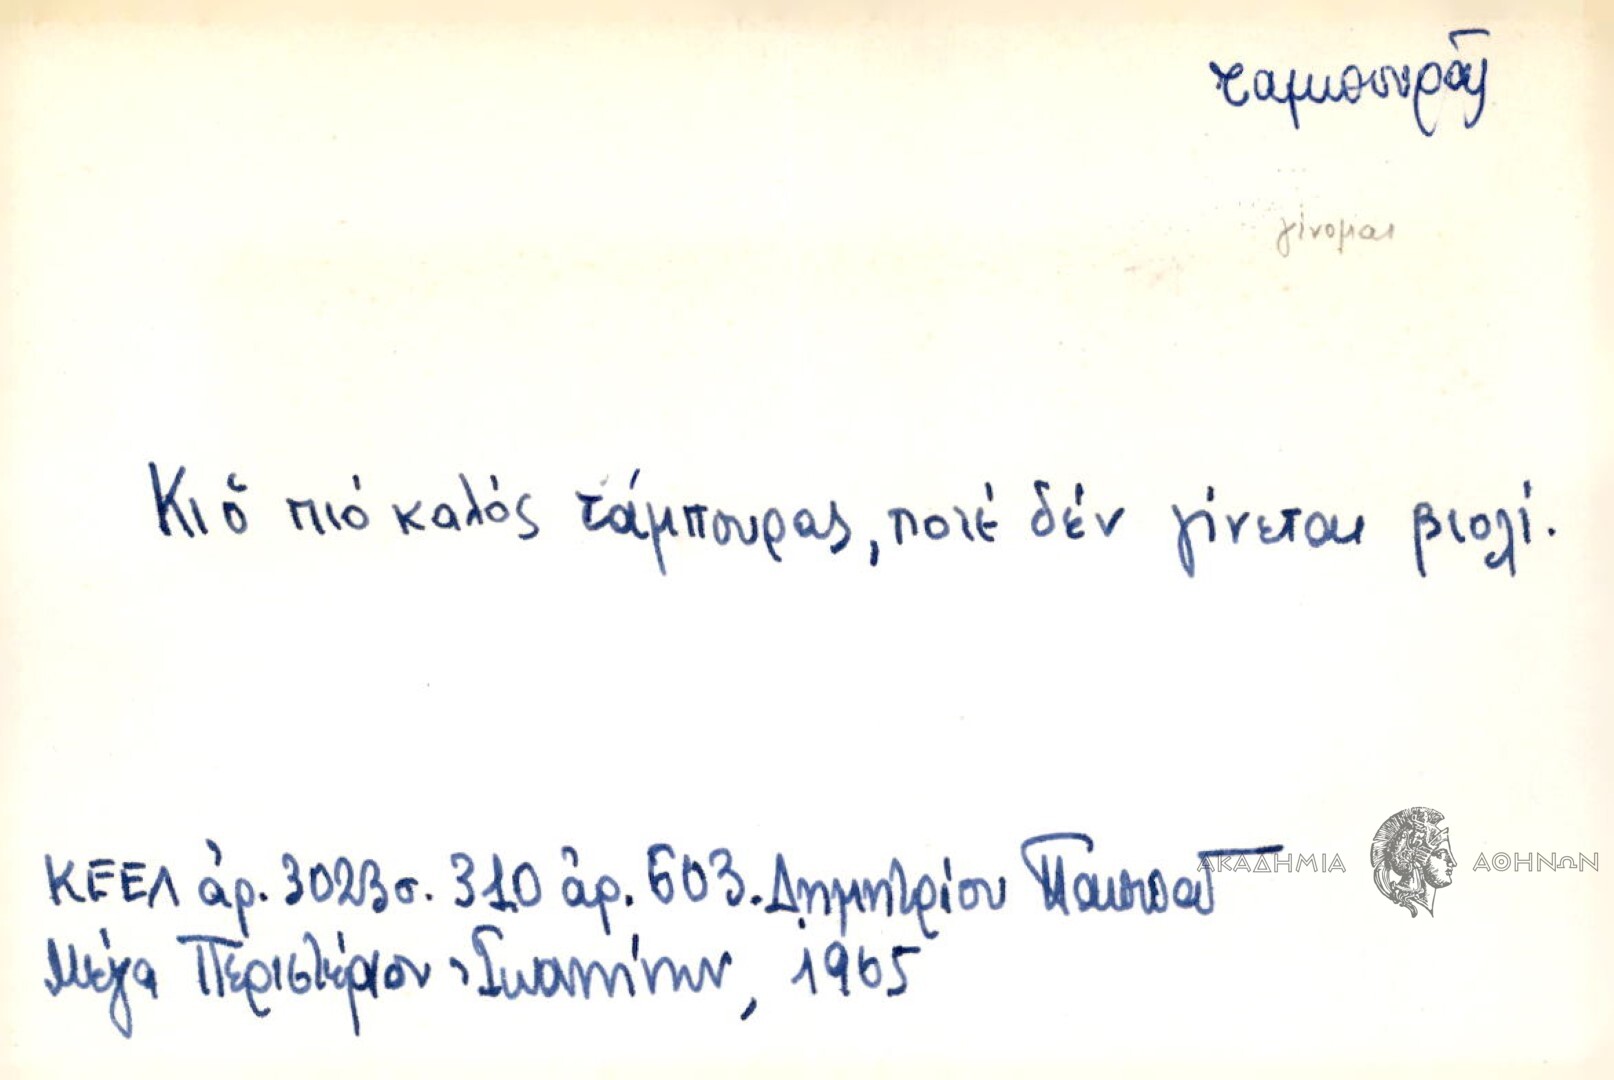 ταμπουρᾶς
γίνομαι
Κι ὁ πιό καλός τάμπουρας, ποτέ δέν γίνεται βιολί.
ΚΕΕΛ ἀρ. 3023 σ. 310 ἀρ. 603. Δημητρίου
ΑΚΑΔΗΜΙΑ ΑΘΗΝΩΝ
Μέγα Περιστέριον Ἰωαννίνων, 1965